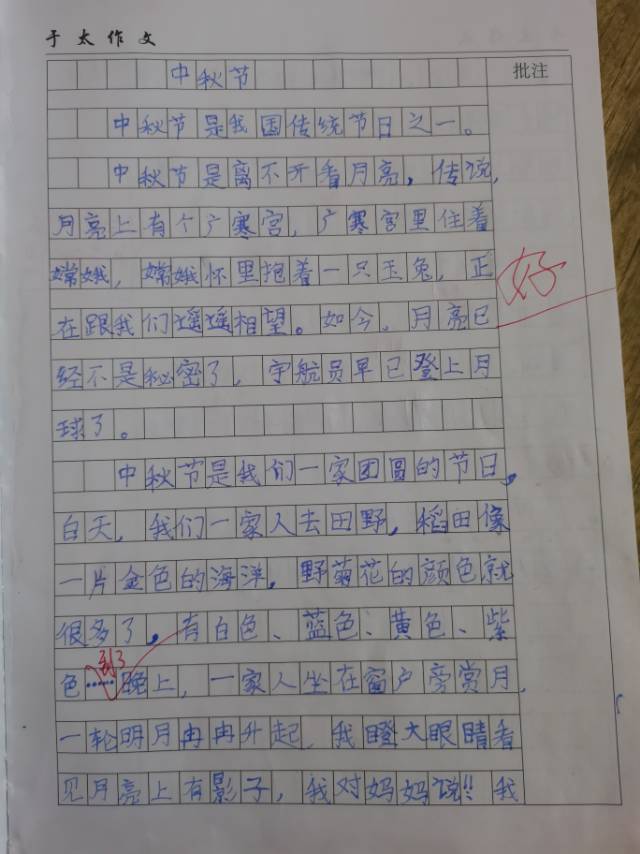 于太作文
中秋节
批注
中秋节是我国传统节日之一。
中秋节是离不开看月亮，传说，
月亮上有个广寒宫，广寒宫里住着
嫦娥，嫦娥怀里抱着一只玉兔，正
好
在跟我们遥遥相望。如今，月亮已
经不是秘密了，宇航员早已登上月
球了。
中秋节是我们一家团圆的节日，
白天，我们一家人去田野，稻田像
一片金色的海洋，野菊花的颜色就
很多了，有白色、蓝色、黄色、紫
到了
色……晚上，一家人坐在窗户旁赏月，
一轮明月冉冉升起，我瞪大眼睛看
见月亮上有影子，我对妈妈说!!我